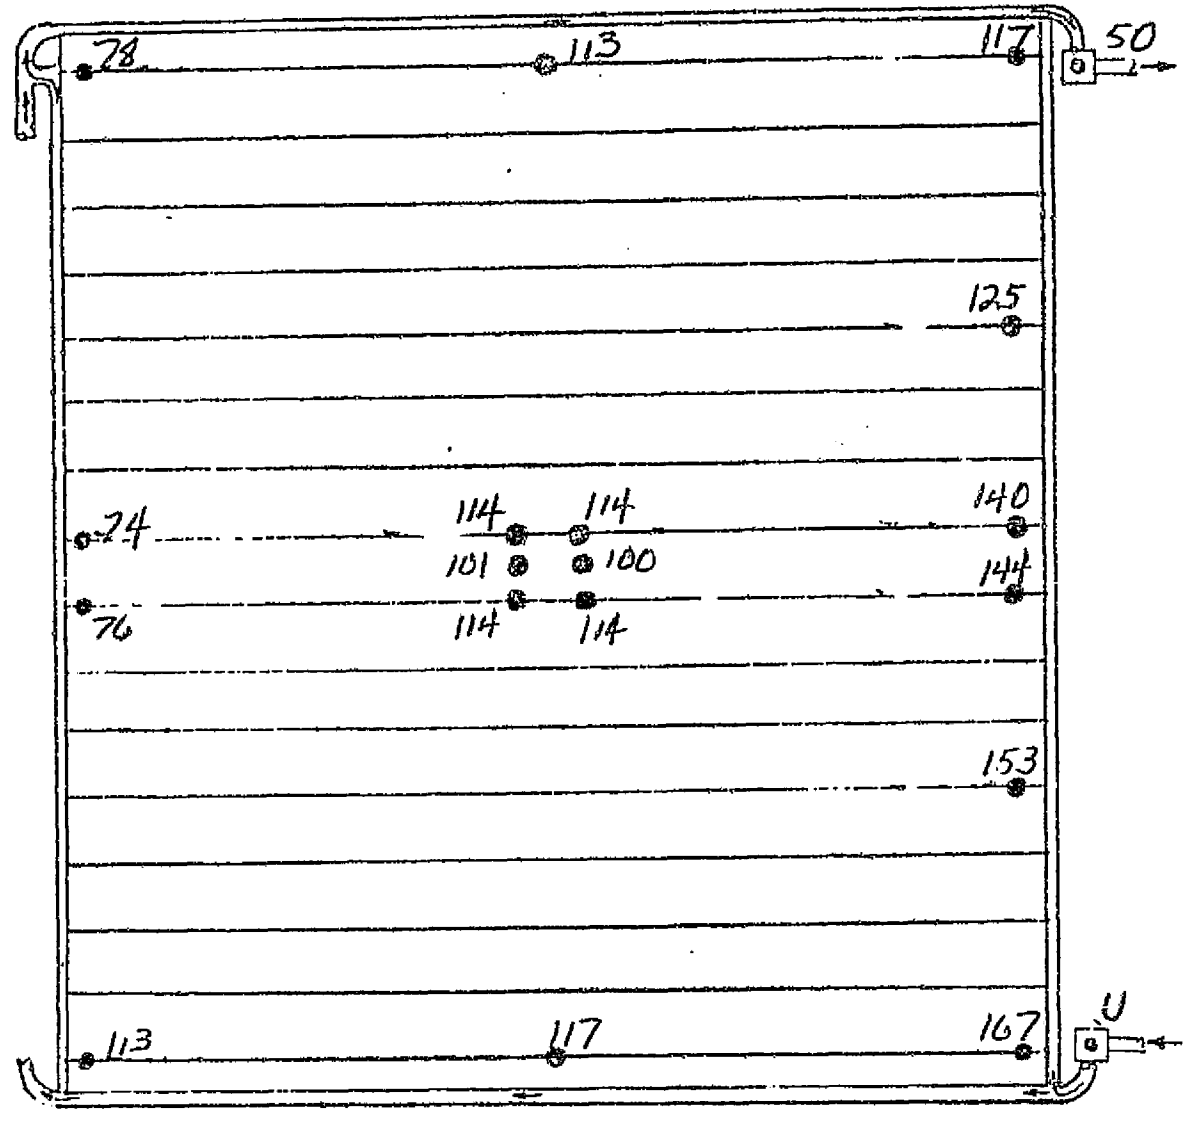 78 113 117 50
125
74 114 114 140
101 100 144
76 114 114
153
113 117 167 U